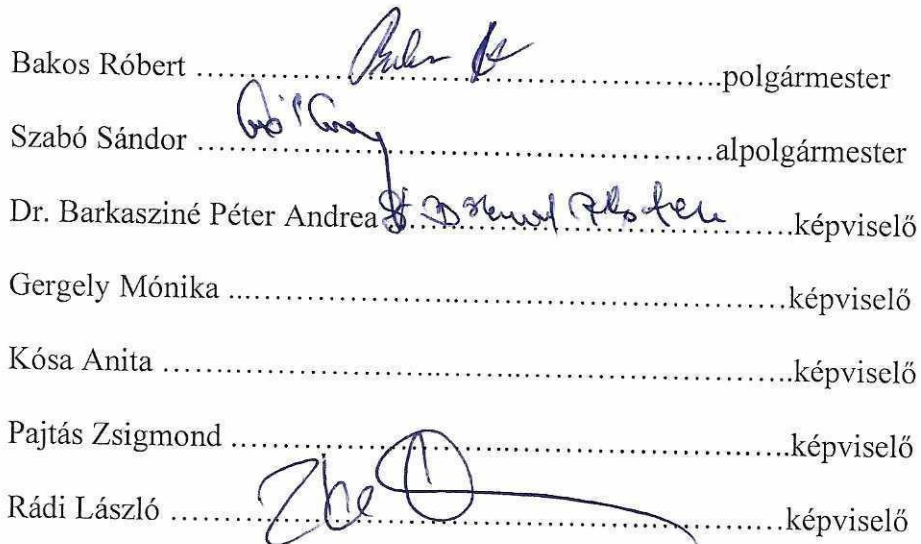 Bakos Róbert ..........................................................polgármester
Szabó Sándor ..........................................................alpolgármester
Dr. Barkasziné Péter Andrea..........................................képviselő
Gergely Mónika ..........................................................képviselő
Kósa Anita ..........................................................képviselő
Pajtás Zsigmond ..........................................................képviselő
Rádi László ..........................................................képviselő